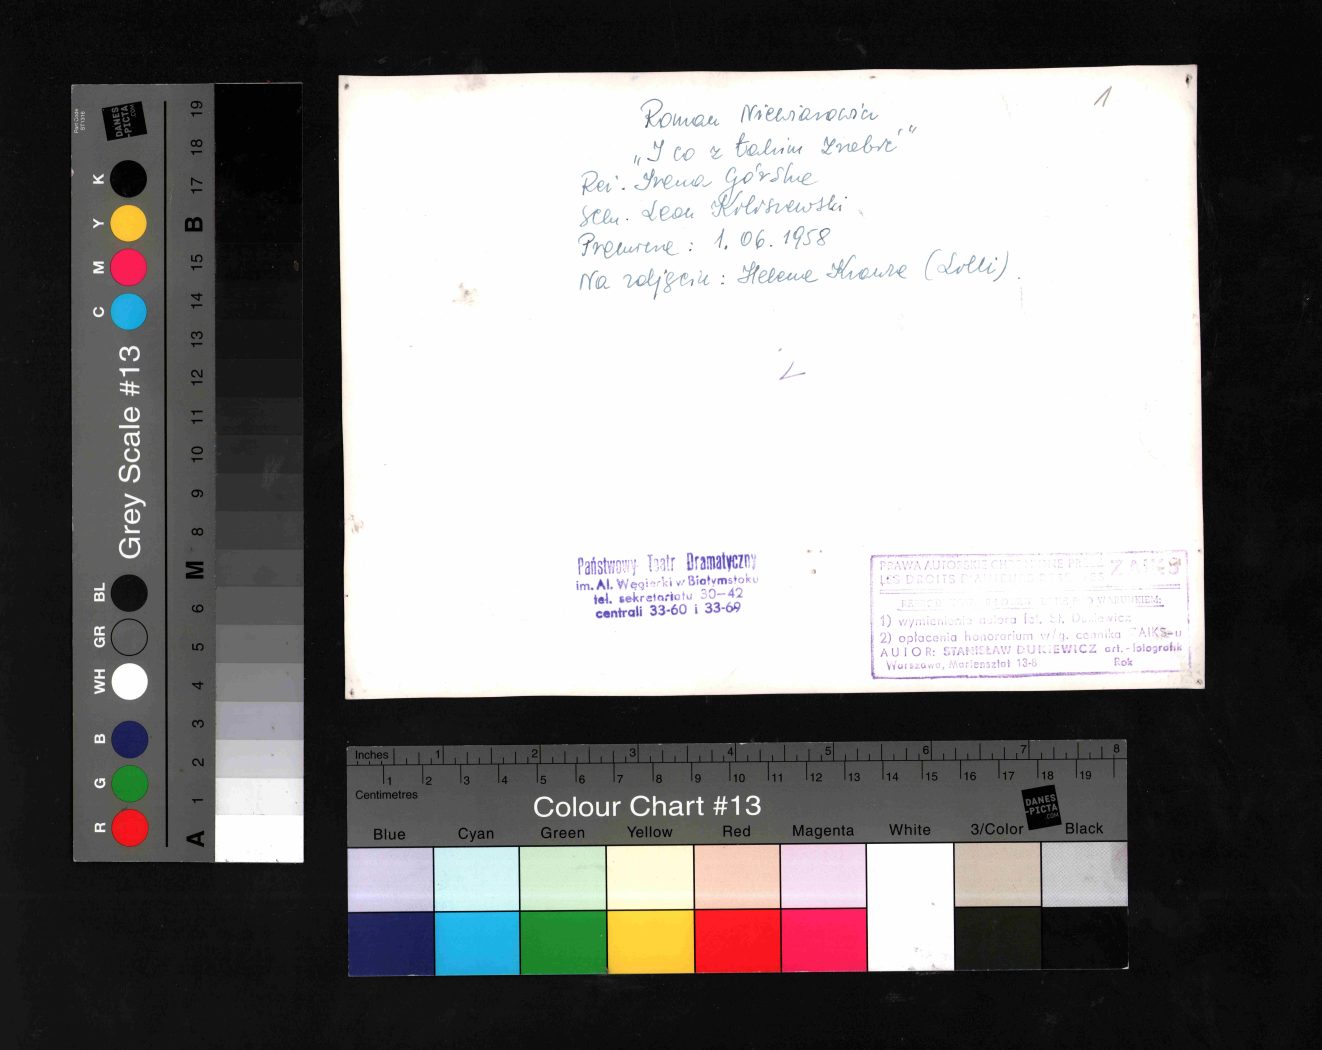 1
Roman Niewiarowicz
„I co z takim zrobić"
Reż. Irena Górska
Scen. Leon Kołoszewski
Premiera : 1. 06. 1958
Na zdjęciu : Helena Krauze (Lolli).
Państwowy Teatr Dramatyczny
im. Al. Węgierki w Białymstoku
tel. sekretariatu 30-42
centrali 33-60 i 33-69
PRAWA AUTORSKIE PRZEZ ZAIKS
LES DROITS
WARUNKIEM:
1) wymienienia autora fot. St. Dukiewicz
2) opłacenia honorarium w/g. cennika ZAIKS-u
AUTOR: STANISŁAW DUKIEWICZ art.-fotografik
Warszawa, Mariensztat 13-6 Rok
Part Code
ST1316
DANES
-PICTA
.COM
Grey Scale #13
R G B WH GR BL C M Y K
A 1 2 3 4 5 6 M 8 9 10 11 12 13 14 15 B 17 18 19
Inches 1 2 3 4 5 6 7 8
1 2 3 4 5 6 7 8 9 10 11 12 13 14 15 16 17 18 19
Centimetres
Colour Chart #13
DANES
-PICTA
.COM
Blue Cyan Green Yellow Red Magenta White 3/Color Black